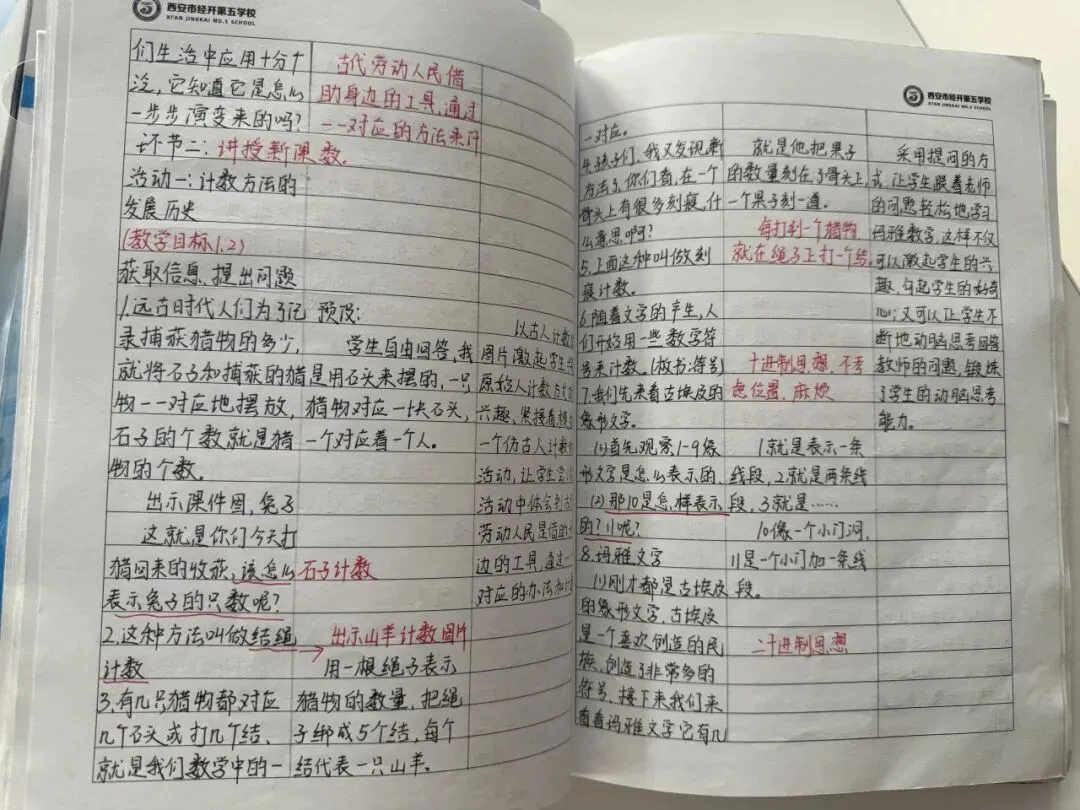 西安市经开第五学校
XI'AN JINGKAI NO.5 SCHOOL
们生活中应用十分广
泛，它知道它是怎么
一步步演变来的吗？
环节二：讲授新课数。
活动一：计数方法的
发展历史
（教学目标1.2）
获取信息、提出问题
1.远古时代人们为了记
录捕获猎物的多少，
就将石子和捕获的猎
物一一对应地摆放，
石子的个数就是猎
物的个数。
出示课件图，兔子
这就是你们今天打
猎回来的收获，该怎么
表示兔子的只数呢？
2.这种方法叫做结绳
计数
3.有几只猎物都对应
几个石头或打几个结、
就是我们数学中的一
古代劳动人民借
助身边的工具，通过
一一对应的方法来计
预设：
学生自由回答，我
是用石头来摆的，一只
猎物对应一块石头，
一个对应着一个人。
石子计数
出示山羊计数图片
用一根绳子表示
猎物的数量，把绳
子绑成5个结，每个
结代表一只山羊。
以古人计数
图片激起学生
原始人计数方
兴趣，紧接着
一个仿古人计数
活动，让学生
活动中体会到
劳动人民是借助
边的工具，通过一
对应的办法和计
西安市经开第五学校
XI'AN JINGKAI NO.5 SCHOOL
一对应。
4.孩子们，我又发现新
方法了，你们看，在一个
骨头上有很多刻痕，什
么意思啊？
5.上面这种叫做刻
痕计数。
6.随着文字的产生，人
们开始用一些数字符
号来计数。（板书：符号）
7.我们先来看古埃及的
象形文字。
（1）首先观察1-9象
形文字是怎么表示的。
（2）那10是怎样表示
的？11呢？
8.玛雅文字
（1）刚才都是古埃及
的象形文字，古埃及
是一个喜欢创造的民
族，创造了非常多的
符号，接下来我们来
看看玛雅文字它有几
就是他把果子
的数量刻在了骨头上，
一个果子刻一道。
每打到一个猎物
就在绳子上打一个结。
十进制思想 不考
虑位置，麻烦
1就是表示一条
线段，2就是两条线
段，3就是……
10像一个小门洞，
11是一个小门加一条线
段。
二十进制思想
采用提问的方
式，让学生跟着老师
的问题轻松地学习
玛雅数学，这样不仅
可以激起学生的兴
趣，勾起学生的好奇
心；又可以让学生不
断地动脑思考回答
教师的问题，锻炼
了学生的动脑思考
能力。